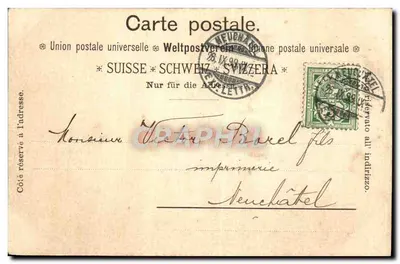 Carte postale.
Union postale universelle ※ Weltpostverein ※ Unione postale universale
SUISSE * SCHWEIZ * SVIZZERA *
Nur für die Adresse
Côté réservé à l'adresse.
riservato all' indirizzo.
NEUCHATEL
IX.99
EXP. LETTR.
NEUCHATEL
Monsieur Victor Borel fils
imprimerie
Neuchâtel